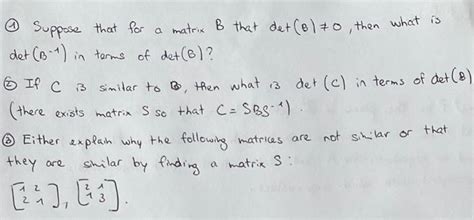 ① Suppose that for a matrix B that det(B)≠0, then what is
det(B⁻¹) in terms of det(B)?
② If C is similar to B, then what is det(C) in terms of det(B)
(there exists matrix S so that C = SBS⁻¹).
③ Either explain why the following matrices are not similar or that
they are similar by finding a matrix S:
[1 2], [2 1]
[2 1]  [1 3].